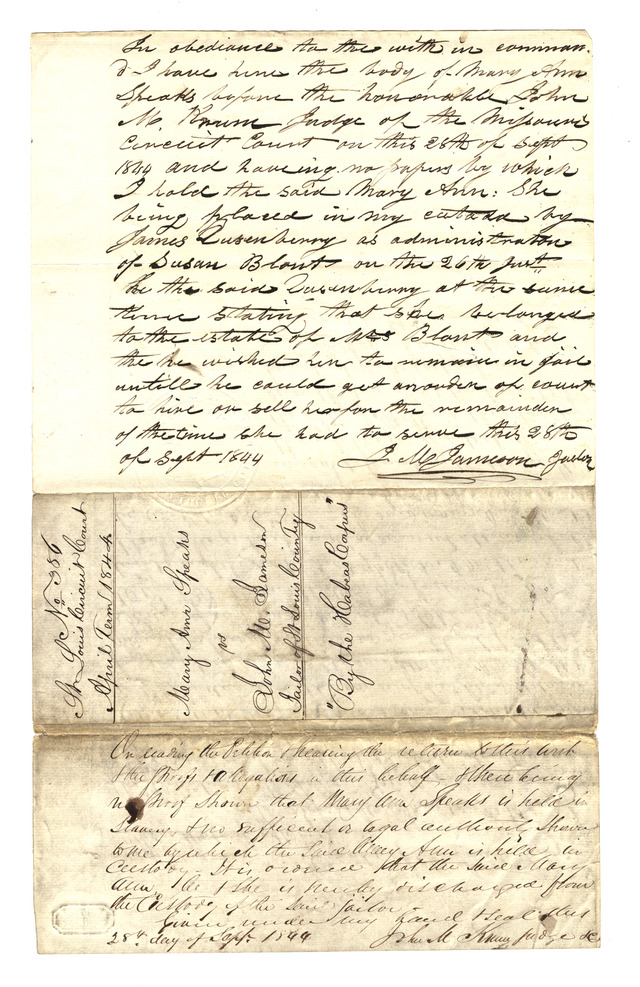 In obediance to the with in comman.
d I have here the body of Mary Ann
Speaks before the honorable John
M. Krum Judge of the Missouri
Circuit Court on this 28th of Sept
1844 and haveing no papers by which
I hold the said Mary Ann: She
being placed in my custada by
James Quesenberry as administrator
of Susan Blont on the 26th Just
he the said Quesenberry at the same
time stating that she belonged
to the estate of Mrs Blont and
the he wished her to remain in jail
untill he could get an order of court
to hire or sell her for the remainder
of the time she had to serve this 28th
of Sept 1844 J. M. Jameson Jailor
No 386
St. Louis Circuit Court
April Term 1844
Mary Ann Speaks
vs
John M. Jameson
Jailor of St Louis County
"By the Habeas Corpus"
On reading the Petition & hearing the return to this writ
& the Proofs & allegations in this behalf - & there being
no proof shown that Mary Ann Speaks is held in
Slavery, & no sufficient or legal authority shown
to me by which the said Mary Ann is held in
Custody. It is ordered that the said Mary
Ann be & she is hereby discharged from
the Custody of the said jailor.
Given under my hand & seal this
28th day of Sept. 1844 John M Krum Judge &c